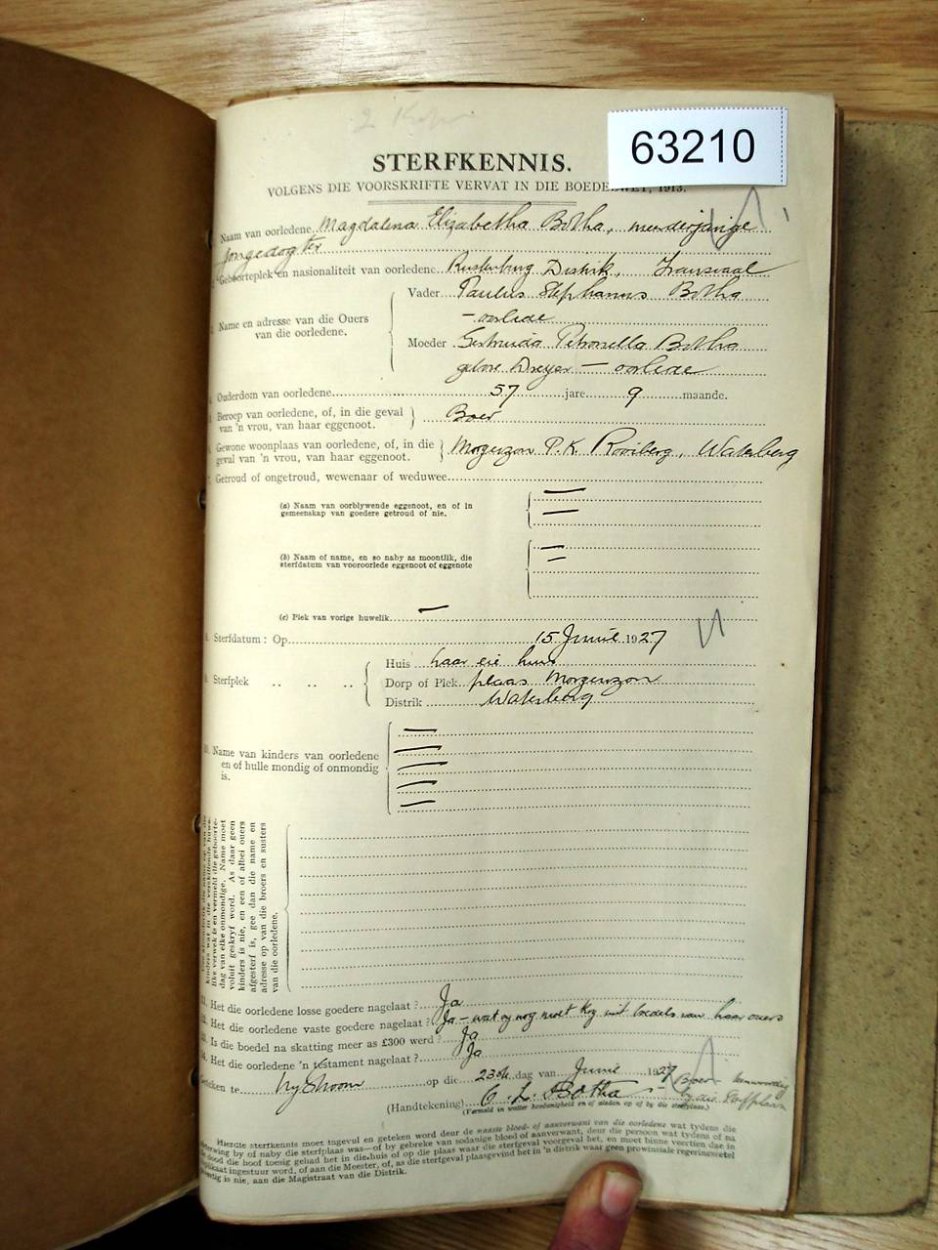 2 Kop
63210
STERFKENNIS.
VOLGENS DIE VOORSKRIFTE VERVAT IN DIE BOEDELWET, 1913.
Naam van oorledene Magdalena Elizabetha Botha, meerderjarige
Jongedogter
Geboorteplek en nasionaliteit van oorledene Rustenburg Distrik, Transvaal
Vader Paulus Stephanus Botha
- oorlede
Name en adresse van die Ouers
van die oorledene.
Moeder Gertruida Petronella Botha
gebore Dreyer - oorlede
Ouderdom van oorledene 57 jare 9 maande.
Beroep van oorledene, of, in die geval
van 'n vrou, van haar eggenoot.
Boer
Gewone woonplaas van oorledene, of, in die
geval van 'n vrou, van haar eggenoot.
Morgenzon P.K Rooiberg, Waterberg
Getroud of ongetroud, wewenaar of weduwee
(a) Naam van oorblywende eggenoot, en of in
gemeenskap van goedere getroud of nie.
(b) Naam of name, en so naby as moontlik, die
sterfdatum van vooroorlede eggenoot of eggenote
(c) Plek van vorige huwelik
8. Sterfdatum: Op 15 Junie 1927
9. Sterfplek
Huis haar eie huis
Dorp of Plek plaas Morgenzon
Distrik Waterberg
10. Name van kinders van oorledene
en of hulle mondig of onmondig
is.
kinders wat in die verskillende huwe-
like verwek is en vermeld die geboorte-
dag van elke onmondige. Name moet
voluit geskryf word. As daar geen
kinders is nie, en een of albei ouers
afgesterf is, gee dan die name en
adresse op van die broers en susters
van die oorledene.
11. Het die oorledene losse goedere nagelaat? Ja
12. Het die oorledene vaste goedere nagelaat? Ja - wat sy nog moet kry uit boedels van haar ouers
13. Is die boedel na skatting meer as £300 werd? Ja
14. Het die oorledene 'n testament nagelaat? Ja
Geteken te Nylstroom op die 23ste dag van Junie 1927
(Handtekening) C. L. Botha - Broer teenwoordig
by die Sterfplaas
(Vermeld in watter hoedanigheid en of aldan op of by die sterfplaas.)
Hierdie sterfkennis moet ingevul en geteken word deur die naaste bloed- of aanverwant van die oorledene wat tydens die
sterwing by of naby die sterfplaas was—of by gebreke van sodanige bloed of aanverwant, deur die persoon wat tydens of na
die dood die hoof toesig gehad het in die huis of op die plaas waar die sterfgeval voorgeval het, en moet binne veertien dae in
duplikaat ingestuur word, of aan die Meester, of, as die sterfgeval plaasgevind het in 'n distrik waar geen provinsiale regeringsetel
gevestig is nie, aan die Magistraat van die Distrik.